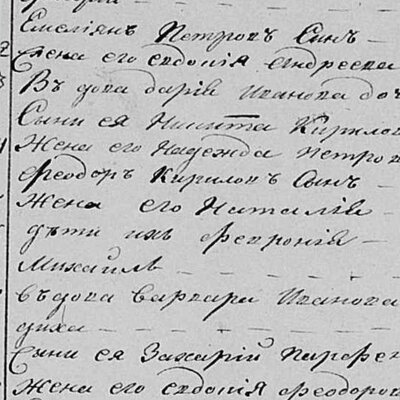 Емелiянъ Петровъ Сынъ
Жена его евдокiя Андреева
Въдова дарiя Иванова доч
Сынъ ея Никита Кирилов
Жена его Надежда Петров
Феодоръ Кириловъ Сынъ
Жена его Наталiя
дѣти ихъ февронiя
Михаилъ
въдова варвара Иванова
Сынъ ея Захарiй Парфен
Жена его евдокiя феодоро